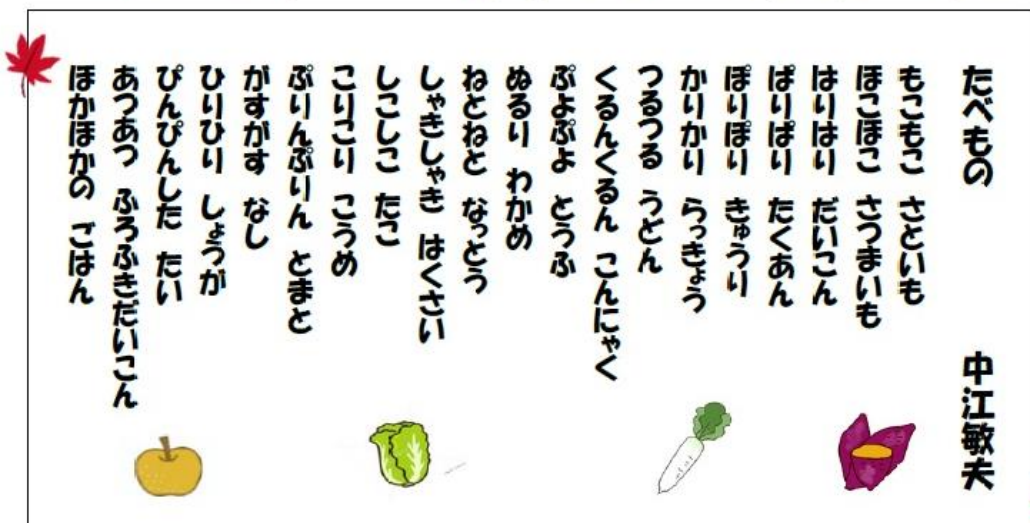 たべもの　中江敏夫
もこもこ　さといも
ほこほこ　さつまいも
はりはり　だいこん
ぱりぱり　たくあん
ぽりぽり　きゅうり
かりかり　らっきょう
つるつる　うどん
くるんくるん　こんにゃく
ぷよぷよ　とうふ
ぬるり　わかめ
ねとねと　なっとう
しゃきしゃき　はくさい
しこしこ　たこ
こりこり　こうめ
ぷりんぷりん　とまと
がすがす　なし
ひりひり　しょうが
ぴんぴんした　たい
あつあつ　ふろふきだいこん
ほかほかの　ごはん